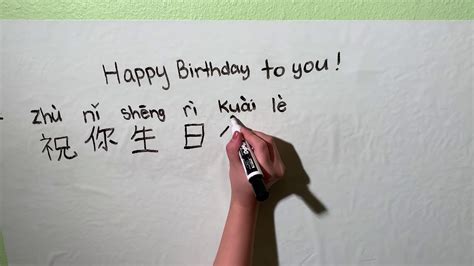 Happy Birthday to you!
zhù nǐ shēng rì kuài lè
祝 你 生 日